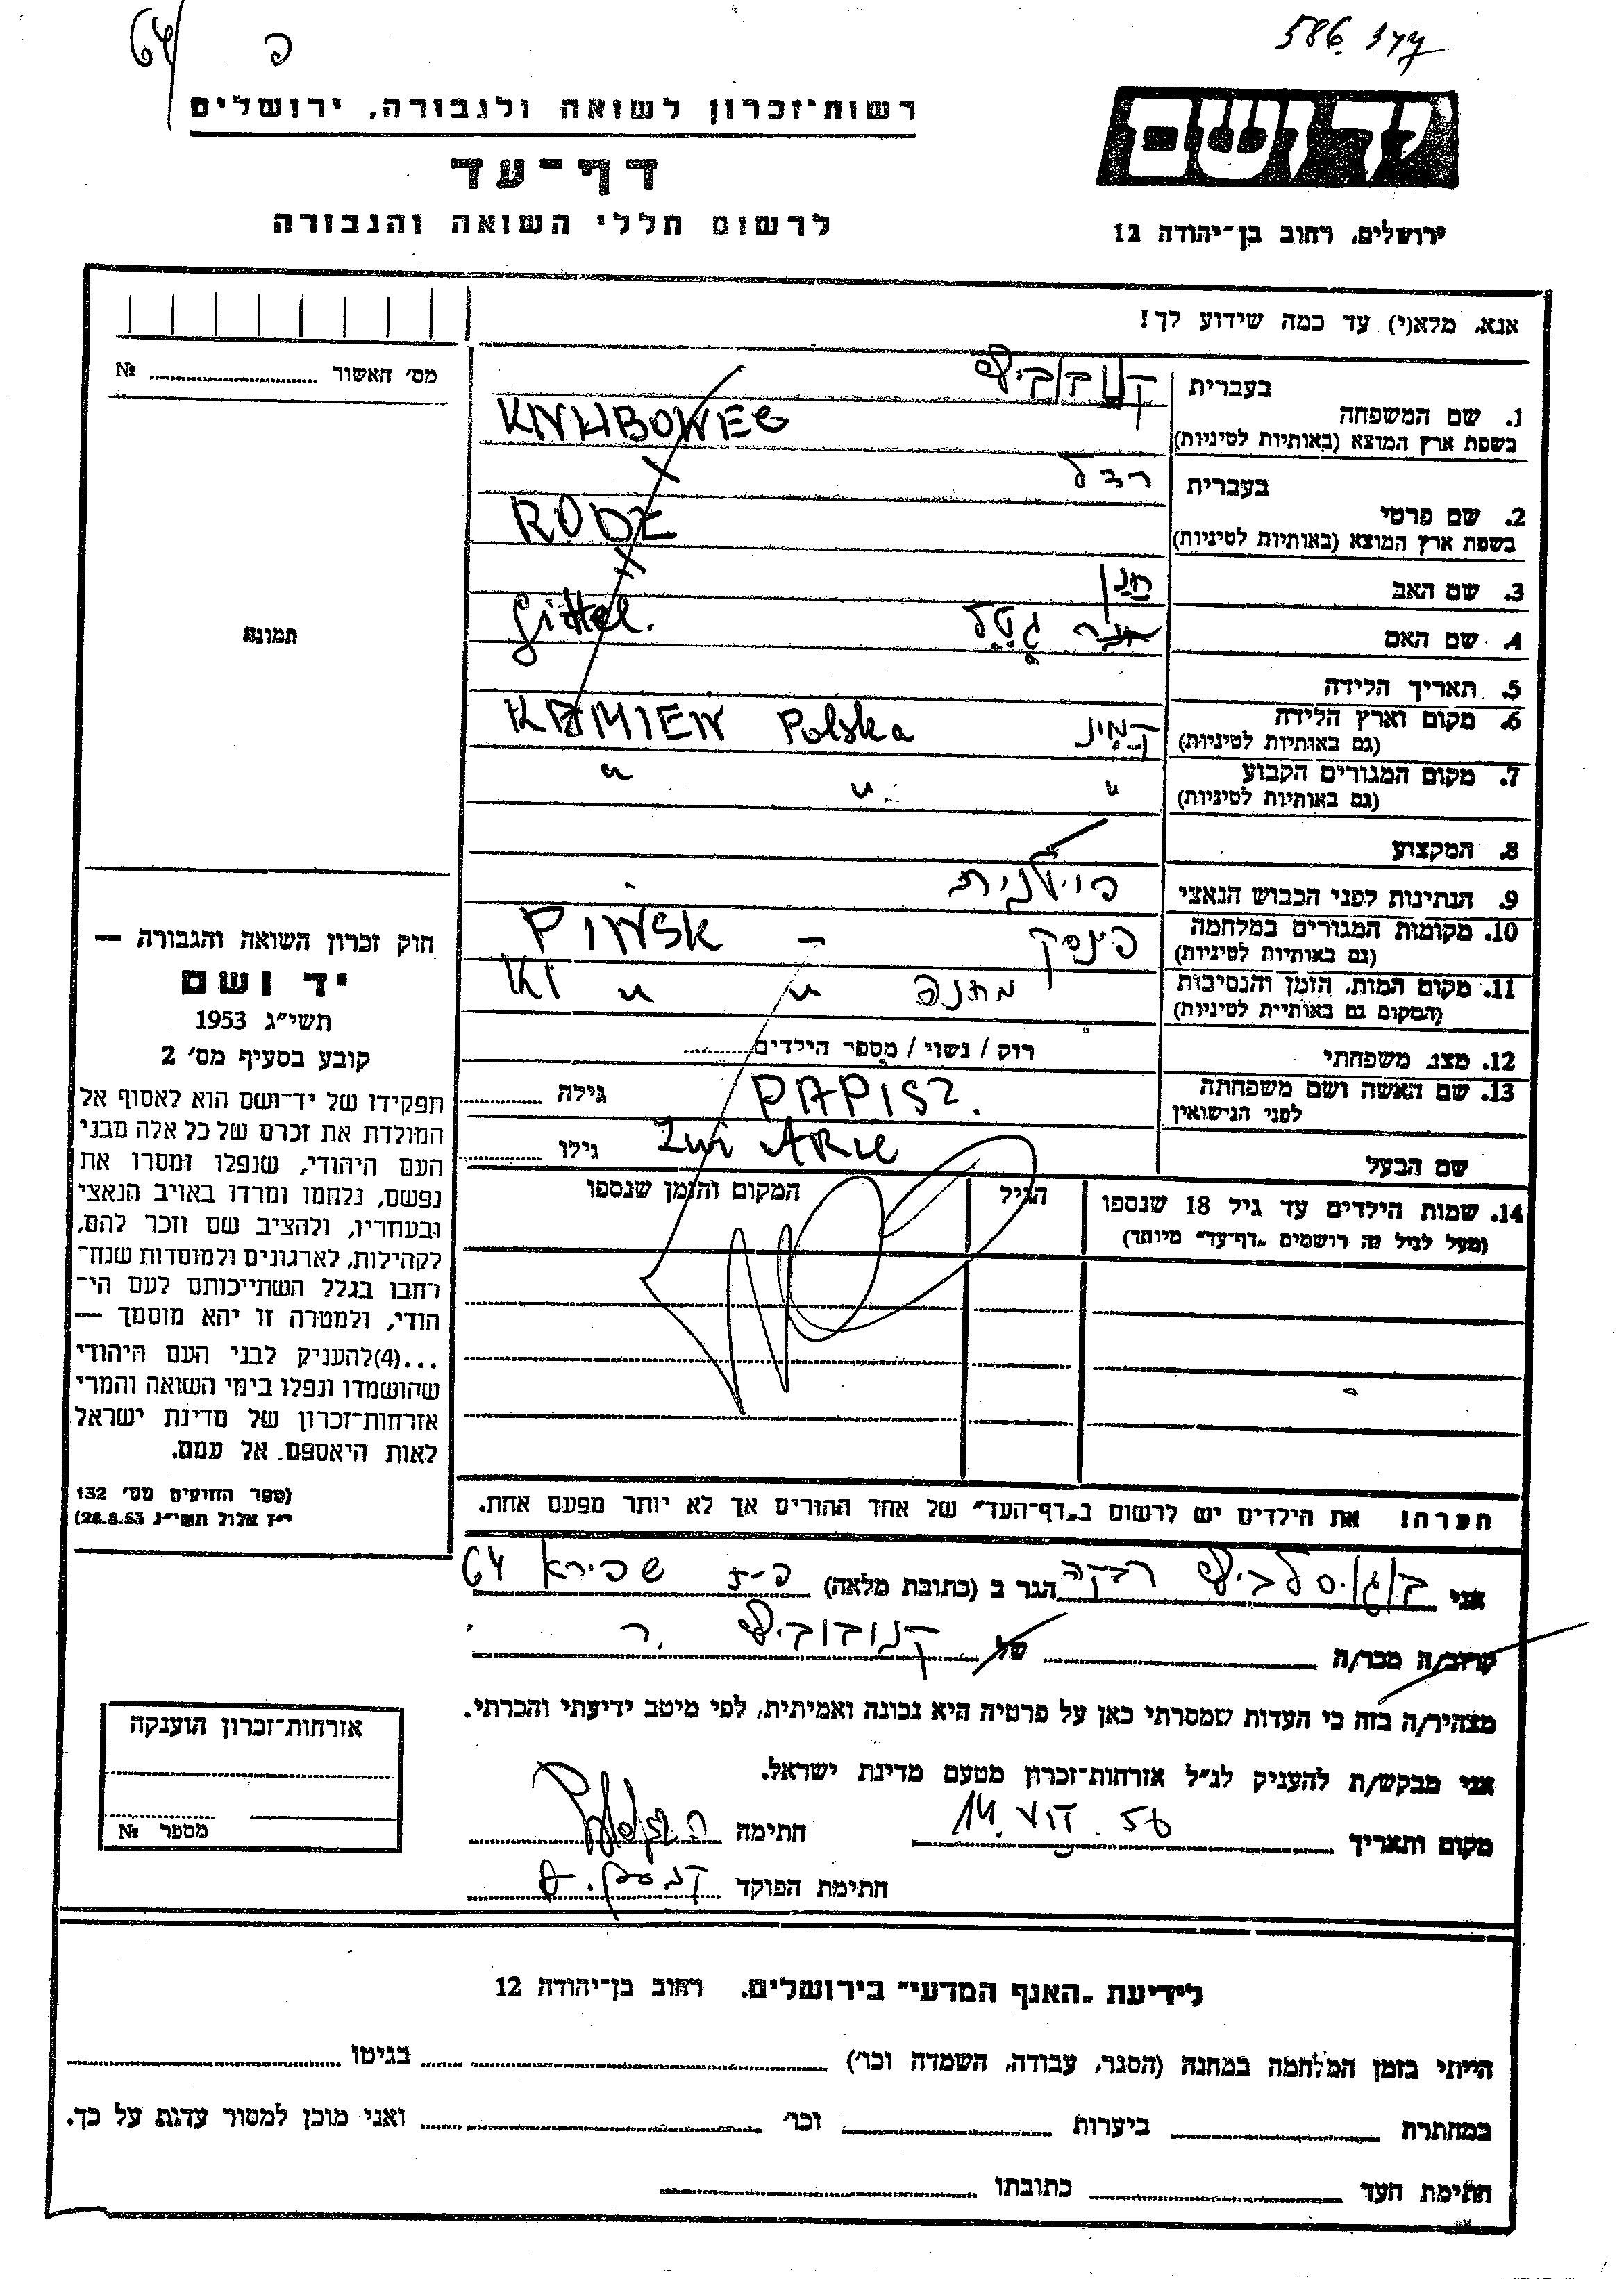 64
פ
586
רשות־זכרון לשואה ולגבורה, ירושלים
דף־עד
לרשום חללי השואה והגבורה
יד ושם
ירושלים, רחוב בן־יהודה 12
אנא, מלא(י) עד כמה שידוע לך!
מס' האשור № ........
תמונה
1. שם המשפחה
בעברית
בשפת ארץ המוצא (באותיות לטיניות)
2. שם פרטי
בעברית
בשפת ארץ המוצא (באותיות לטיניות)
RODZ
3. שם האב
חנן
4. שם האם
גיטל Gittel.
5. תאריך הלידה
6. מקום וארץ הלידה
(גם באותיות לטיניות)
קמין Polska KAMIEN
7. מקום המגורים הקבוע
(גם באותיות לטיניות)
" " "
8. המקצוע
9. הנתינות לפני הכבוש הנאצי
פולנית
10. מקומות המגורים במלחמה
(גם באותיות לטיניות)
פינסק – PINSK
11. מקום המות, הזמן והנסיבות
(המקום גם באותיות לטיניות)
מחנה " "
12. מצב משפחתי
רוק / נשוי / מספר הילדים........
13. שם האשה ושם משפחתה
לפני הנישואין
PAPISZ.
גילה ........
שם הבעל
ARIE
גילו ........
14. שמות הילדים עד גיל 18 שנספו
(מעל לגיל זה רושמים "דף־עד" מיוחד)
הגיל
המקום והזמן שנספו
הערה! את הילדים יש לרשום ב"דף־העד" של אחד ההורים אך לא יותר מפעם אחת.
חוק זכרון השואה והגבורה —
יד ושם
תשי"ג 1953
קובע בסעיף מס' 2
תפקידו של יד־ושם הוא לאסוף אל
המולדת את זכרם של כל אלה מבני
העם היהודי, שנפלו ומסרו את
נפשם, נלחמו ומרדו באויב הנאצי
ובעוזריו, ולהציב שם וזכר להם,
לקהילות, לארגונים ולמוסדות שנח־
רחבו בגלל השתייכותם לעם הי־
הודי, ולמטרה זו יהא מוסמך —
...(4)להעניק לבני העם היהודי
שהושמדו ונפלו בימי השואה והמרי
אזרחות־זכרון של מדינת ישראל
לאות היאספם אל עמם.
(ספר החוקים מס' 132
י"ז אלול תשי"ג 28.8.53)
אני רבקה הגר ב (כתובת מלאה) פ־ת שפירא 64
קרוב/ה מכר/ה של קנובוביץ ר.
מצהיר/ה בזה כי העדות שמסרתי כאן על פרטיה היא נכונה ואמיתית, לפי מיטב ידיעתי והכרתי.
אני מבקש/ת להעניק לנ"ל אזרחות־זכרון מטעם מדינת ישראל.
מקום ותאריך 14. VII. 56 חתימה
חתימת הפוקד
אזרחות־זכרון הוענקה
מספר №
לידיעת "האגף המדעי" בירושלים. רחוב בן־יהודה 12
הייתי בזמן המלחמה במחנה (הסגר, עבודה, השמדה וכו') ........ בגיטו ........
במחתרת ........ ביערות ........ וכו' ........ ואני מוכן למסור עדות על כך.
חתימת העד ........ כתובתו ........